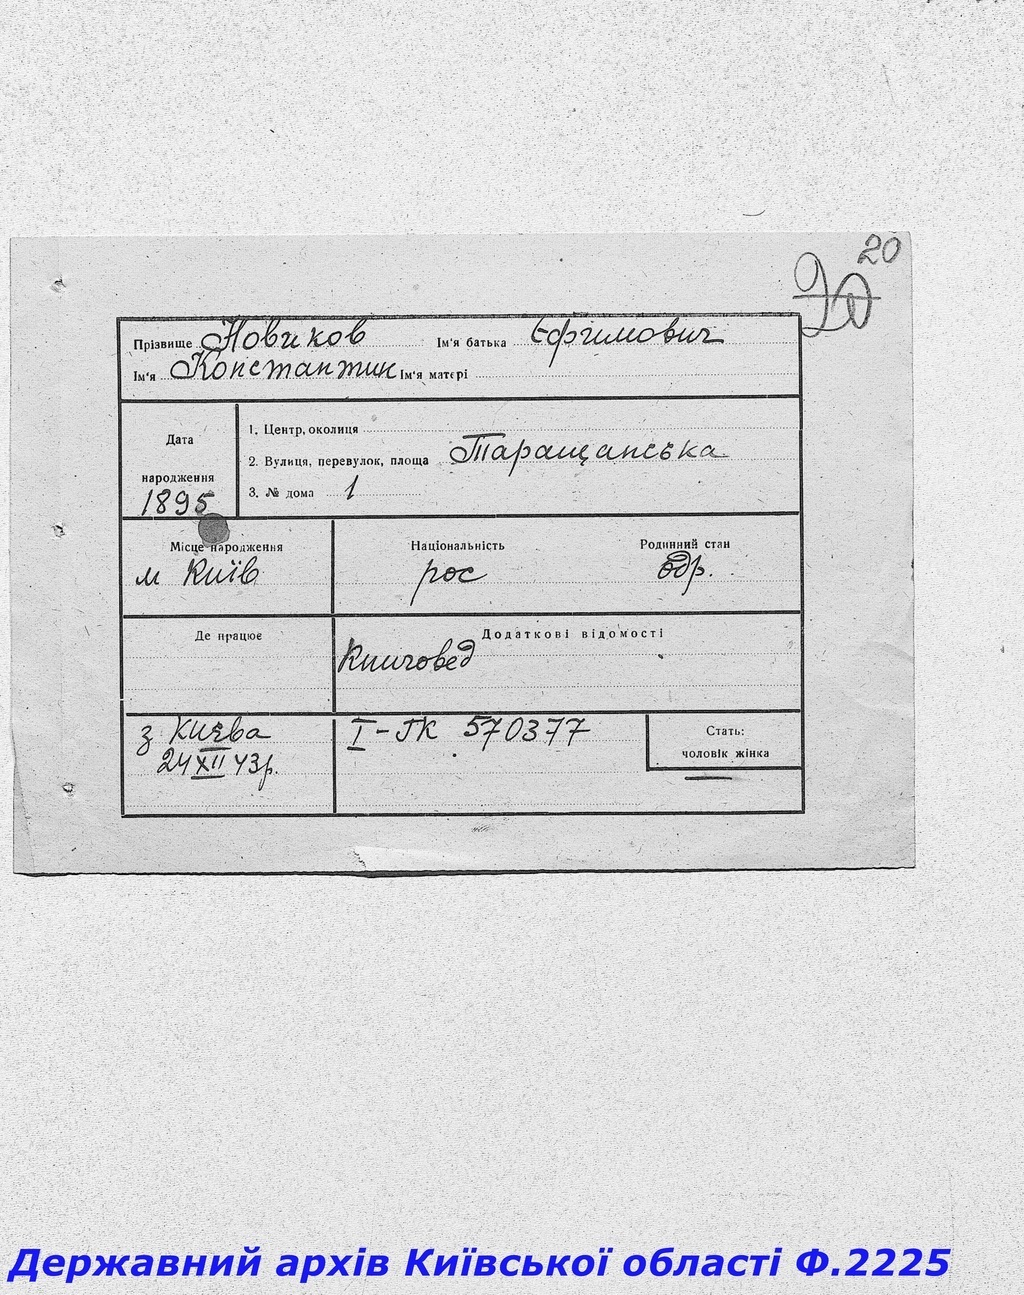 20
20
Прізвище Новиков Ім'я батька Ефимович
Ім'я Константин Ім'я матері
Дата народження
1895
1. Центр, околиця
2. Вулиця, перевулок, площа Таращанська
3. № дома 1
Місце народження
м Київ
Національність
рос
Родинний стан
одр.
Де працює
Додаткові відомості
Книговед
з Києва
24 XII 43р.
I-ГК 570377
Стать:
чоловік жінка
Державний архів Київської області Ф.2225